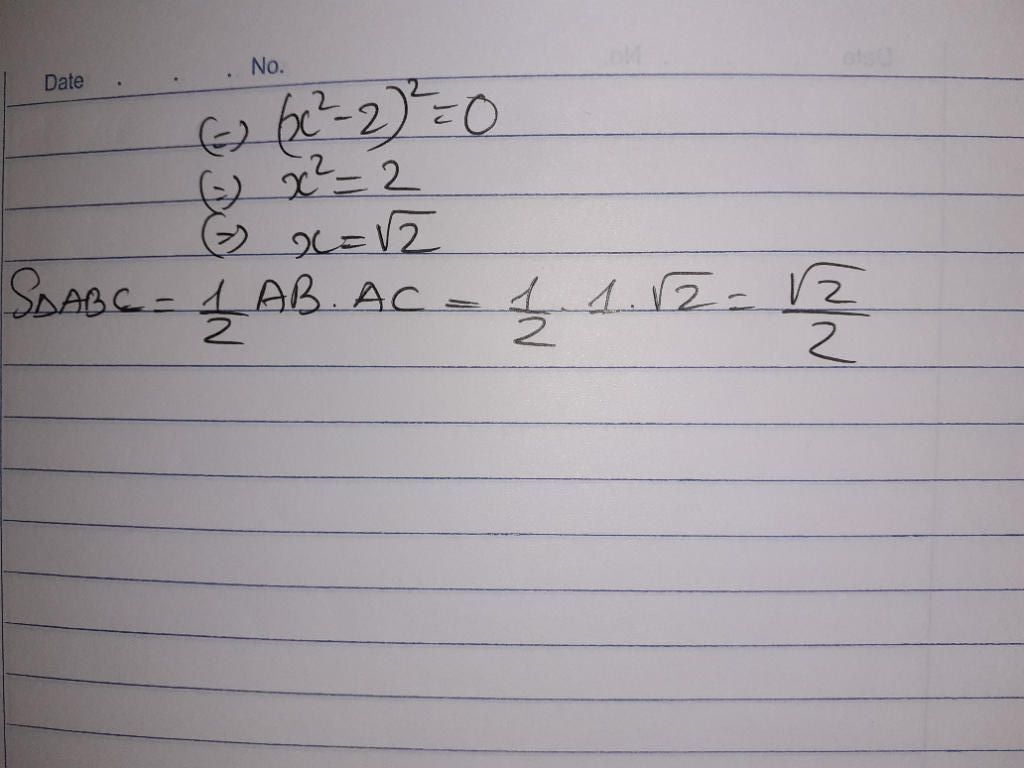 Date . . . No.
(=) (x²-2)²=0
(=) x²=2
(=) x=√2
S△ABC = 1/2 AB. AC = 1/2 . 1. √2 = √2/2